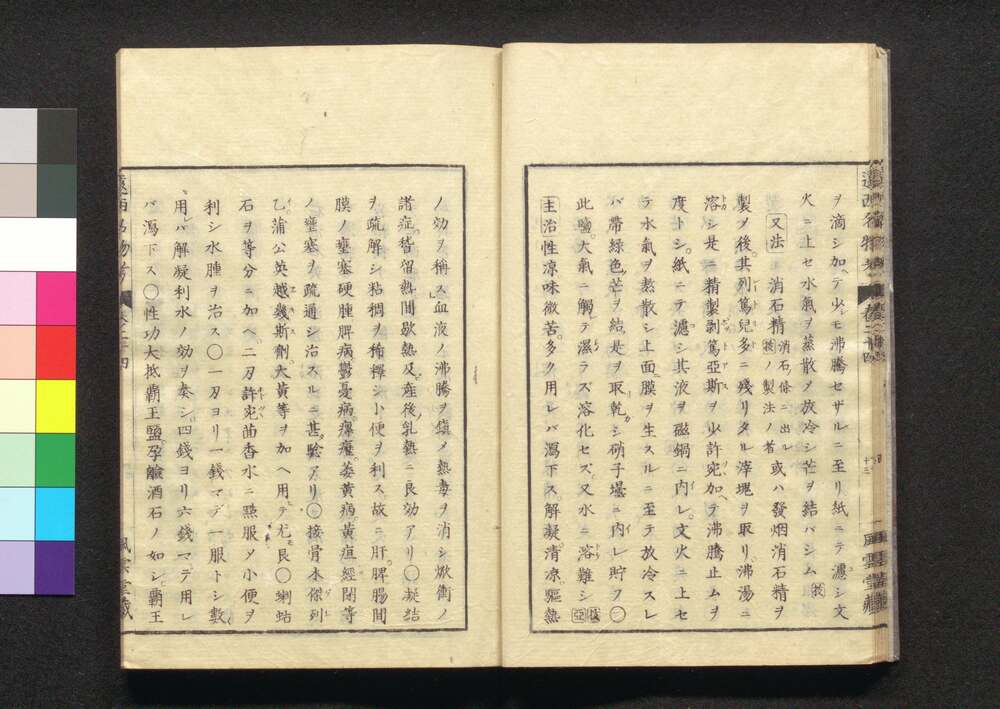 ヲ滴シ加ヘテ少モ沸騰セザルニ至リ紙ニテ濾シ文
火ニ上セ水氣ヲ蒸散メ放冷シ芒ヲ結バシム 扶
又法 消石精 消石ノ條ニ出ル 扶ノ製法ノ者 或ハ發烟消石精ヲ
製メ後其列篤兒多ニ殘リタル滓塊ヲ取リ沸湯ニ
溶シ是ニ精製剥篤亞斯ヲ少許宛加ヘテ沸騰止ムヲ
度トシ紙ニテ濾シ其液ヲ磁鍋ニ内レ文火ニ上セ
テ水氣ヲ蒸散シ上面膜ヲ生スルニ至テ放冷スレ
バ帶緑色芒ヲ結ブ是ヲ取乾シ硝子壜ニ内レ貯フ○
此鹽大氣ニ觸テ濕ラズ溶化セズ又水ニ溶難シ 扶 亞
主治性涼味微苦多ク用レバ瀉下ス解凝清涼驅熱
ノ効ヲ稱ス血液ノ沸騰ヲ鎭メ熱毒ヲ消シ焮衝ノ
諸症皆留熱間歇熱及産後乳熱ニ良効アリ○凝結
ヲ疏解シ粘稠ヲ稀釋シ小便ヲ利ス故ニ肝脾腸間
膜ノ壅塞硬腫脾病鬱憂病瘰癧萎黄病黄疸經閉等
ノ壅塞ヲ疏通シ治スルニ甚驗アリ○接骨木傑列
乙蒲公英越幾斯劑大黄等ヲ加ヘ用テ尤良○蝲蛄
石ヲ等分ニ加ヘ二刀許宛茴香水ニ點服メ小便ヲ
利シ水腫ヲ治ス○一刀ヨリ一錢マデ一服トシ數
用レバ解凝利水ノ効ヲ奏シ四錢ヨリ六錢マデ用レ
バ瀉下ス○性功大抵覇王鹽孕鹼酒石ノ如シ覇王